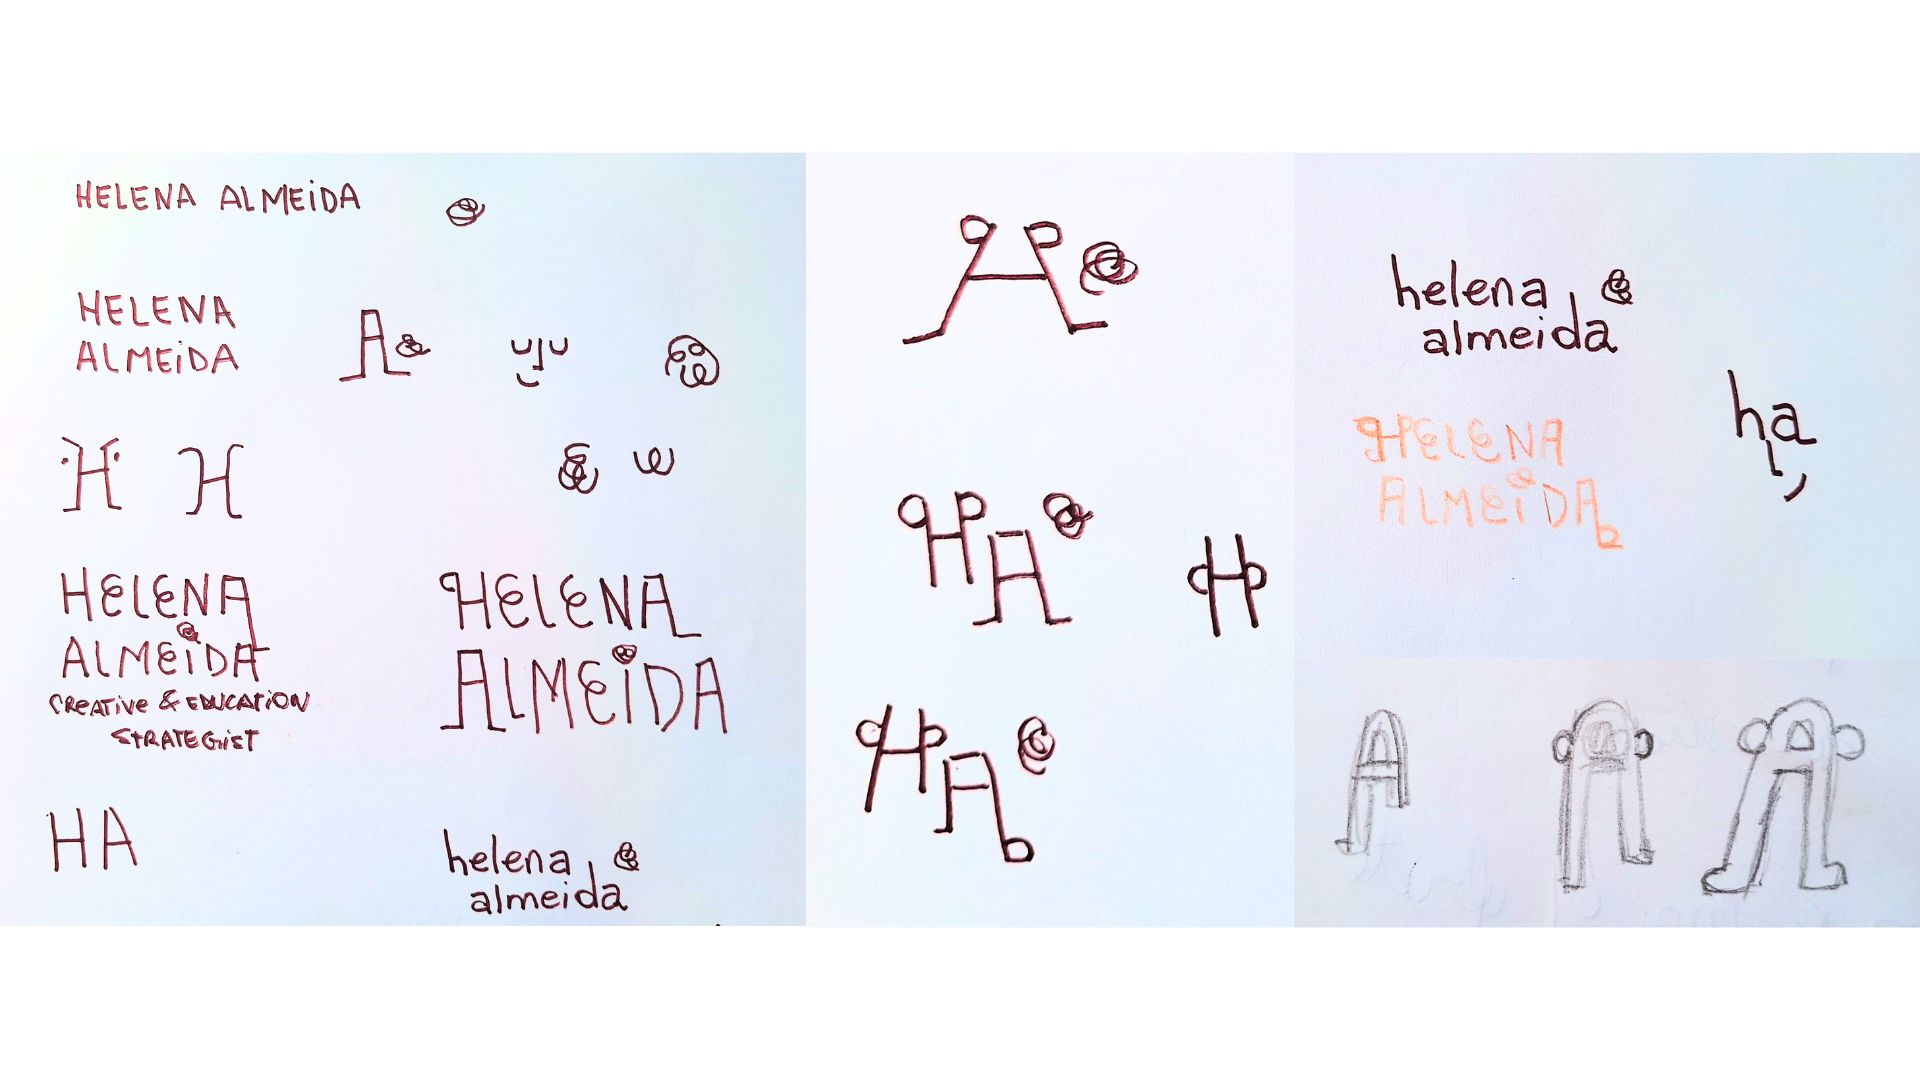 HELENA ALMEiDA
HELENA
ALMEiDA
A
H H
HELENA
ALMEiDA
CREATive & EDUCATiON
STRATEGiST
HELENA
ALMEiDA
HA
helena
almeida
H
HA
H
HA
helena
almeida
HELENA
ALMEiDA
ha
A A A